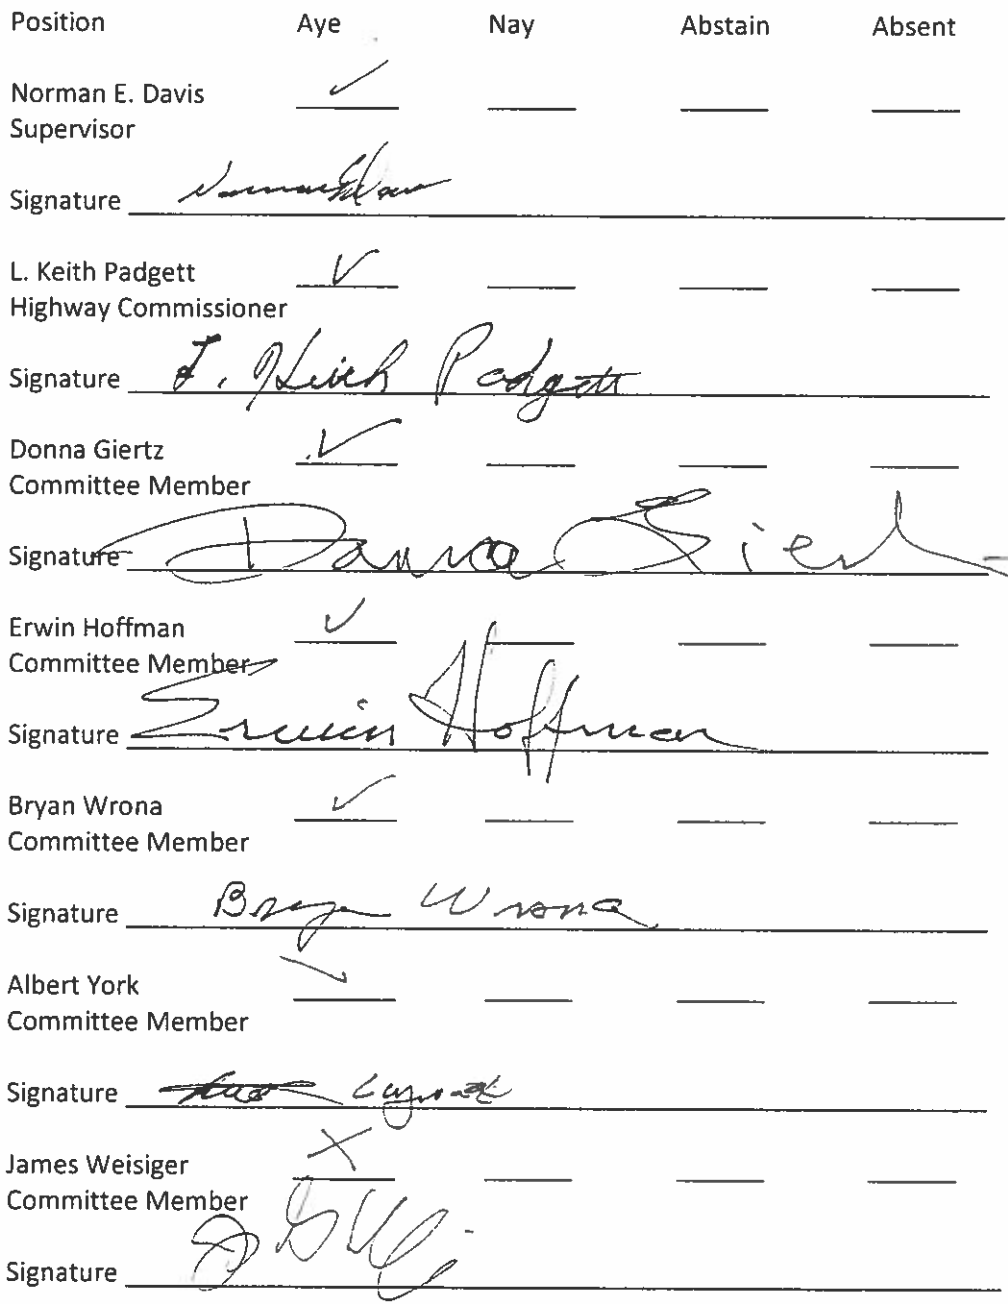 Position Aye Nay Abstain Absent
Norman E. Davis ✓
Supervisor
Signature
L. Keith Padgett ✓
Highway Commissioner
Signature L. Keith Padgett
Donna Giertz ✓
Committee Member
Signature Donna Giertz
Erwin Hoffman ✓
Committee Member
Signature Erwin Hoffman
Bryan Wrona ✓
Committee Member
Signature Bryan Wrona
Albert York ✓
Committee Member
Signature
James Weisiger X
Committee Member
Signature